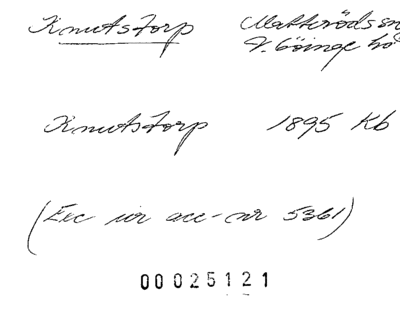 Knutstorp Matteröds sn
V. Göinge hd
Knutstorp 1895 Kb
(Exc ur acc-nr 5361)
00025121